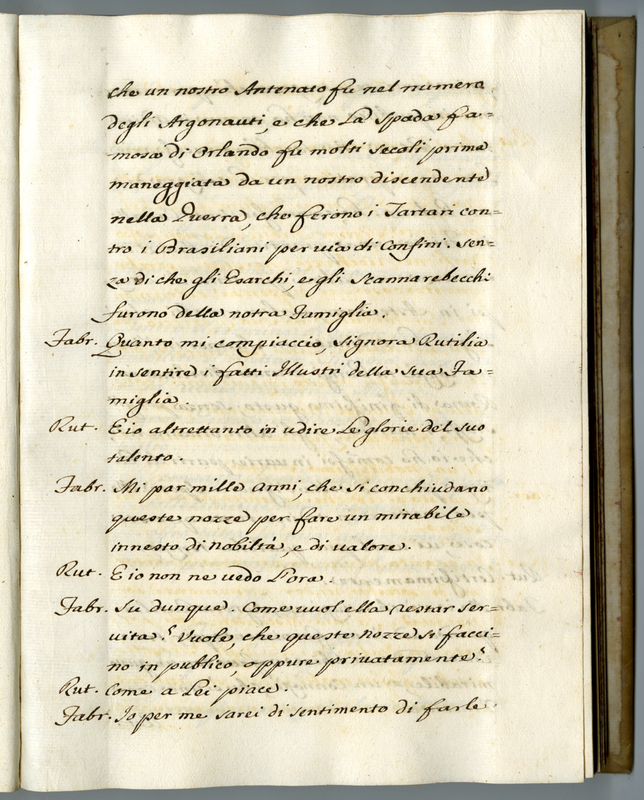 che un nostro Antenato fu nel numero
degli Argonauti, e che La Spada fa=
mosa di Orlando fu molti secoli prima
maneggiata da un nostro discendente
nella Guerra, che ferono i Tartari con=
tro i Brasiliani per via di Confini. Sen=
za di che gli Esarchi, e gli Scannarebecchi
furono della notra Famiglia.
Fabr. Quanto mi compiaccio, Signora Rutilia
in sentire i fatti Illustri della sua Fa=
miglia.
Rut. E io altrettanto in udire Le glorie del suo
talento.
Fabr. Mi par mille anni, che si conchiudano
queste nozze per fare un mirabile
innesto di nobiltà, e di valore.
Rut. E io non ne vedo l'ora.
Fabr. Su dunque. Come vuol ella restar ser=
vita? Vuole, che queste nozze si facci=
no in publico, oppure privatamente?
Rut. Come a Lei piace.
Fabr. Io per me sarei di sentimento di farle